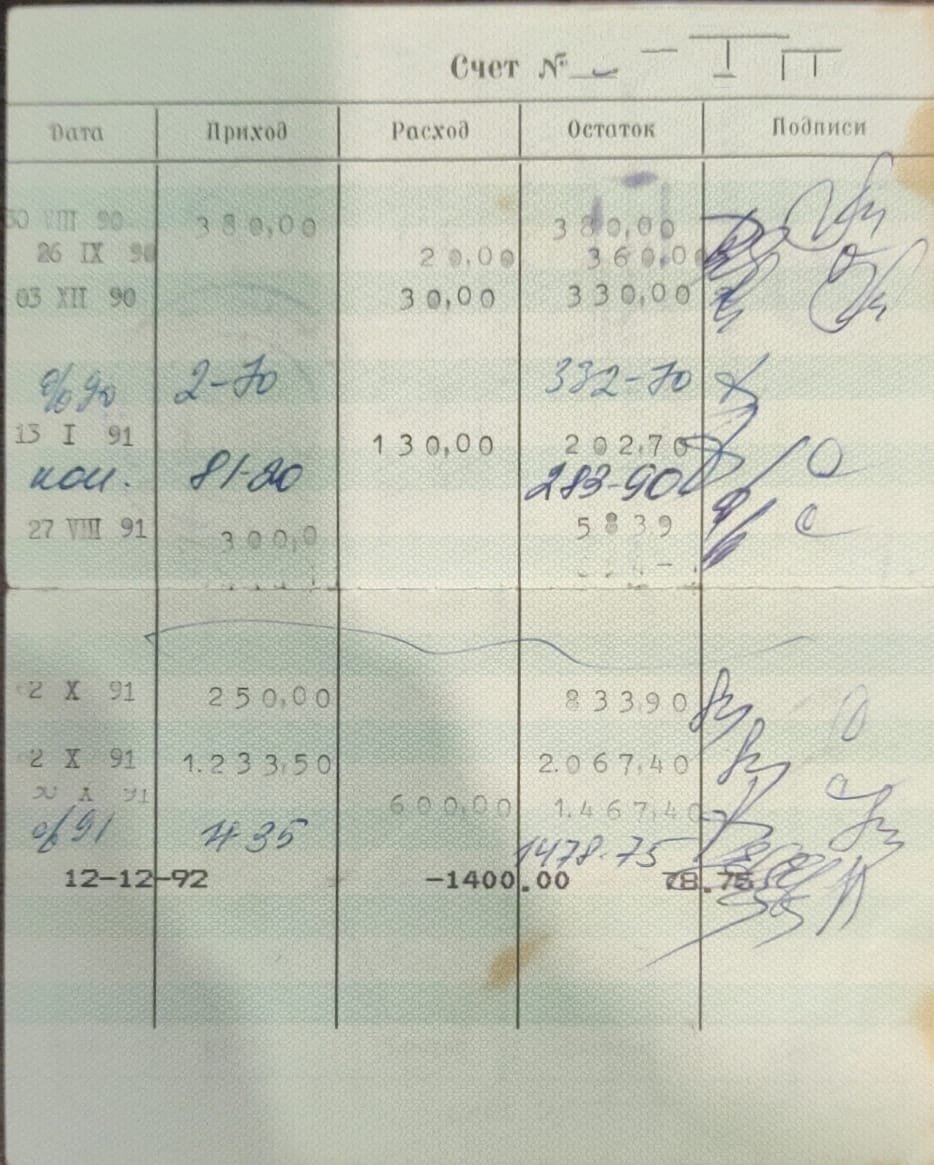 Счет №
Дата Приход Расход Остаток Подписи
30 VIII 90 380,00 380,00
26 IX 90 20,00 360,00
03 XII 90 30,00 330,00
% 90 2-70 332-70
13 I 91 130,00 202,70
ком. 81-20 283-90
27 VIII 91 300,0 5839
2 X 91 250,00 83390
2 X 91 1.233,50 2.067,40
X 91 600,00 1.467,40
% 91 11-35 1478-75
12-12-92 -1400.00 78.75